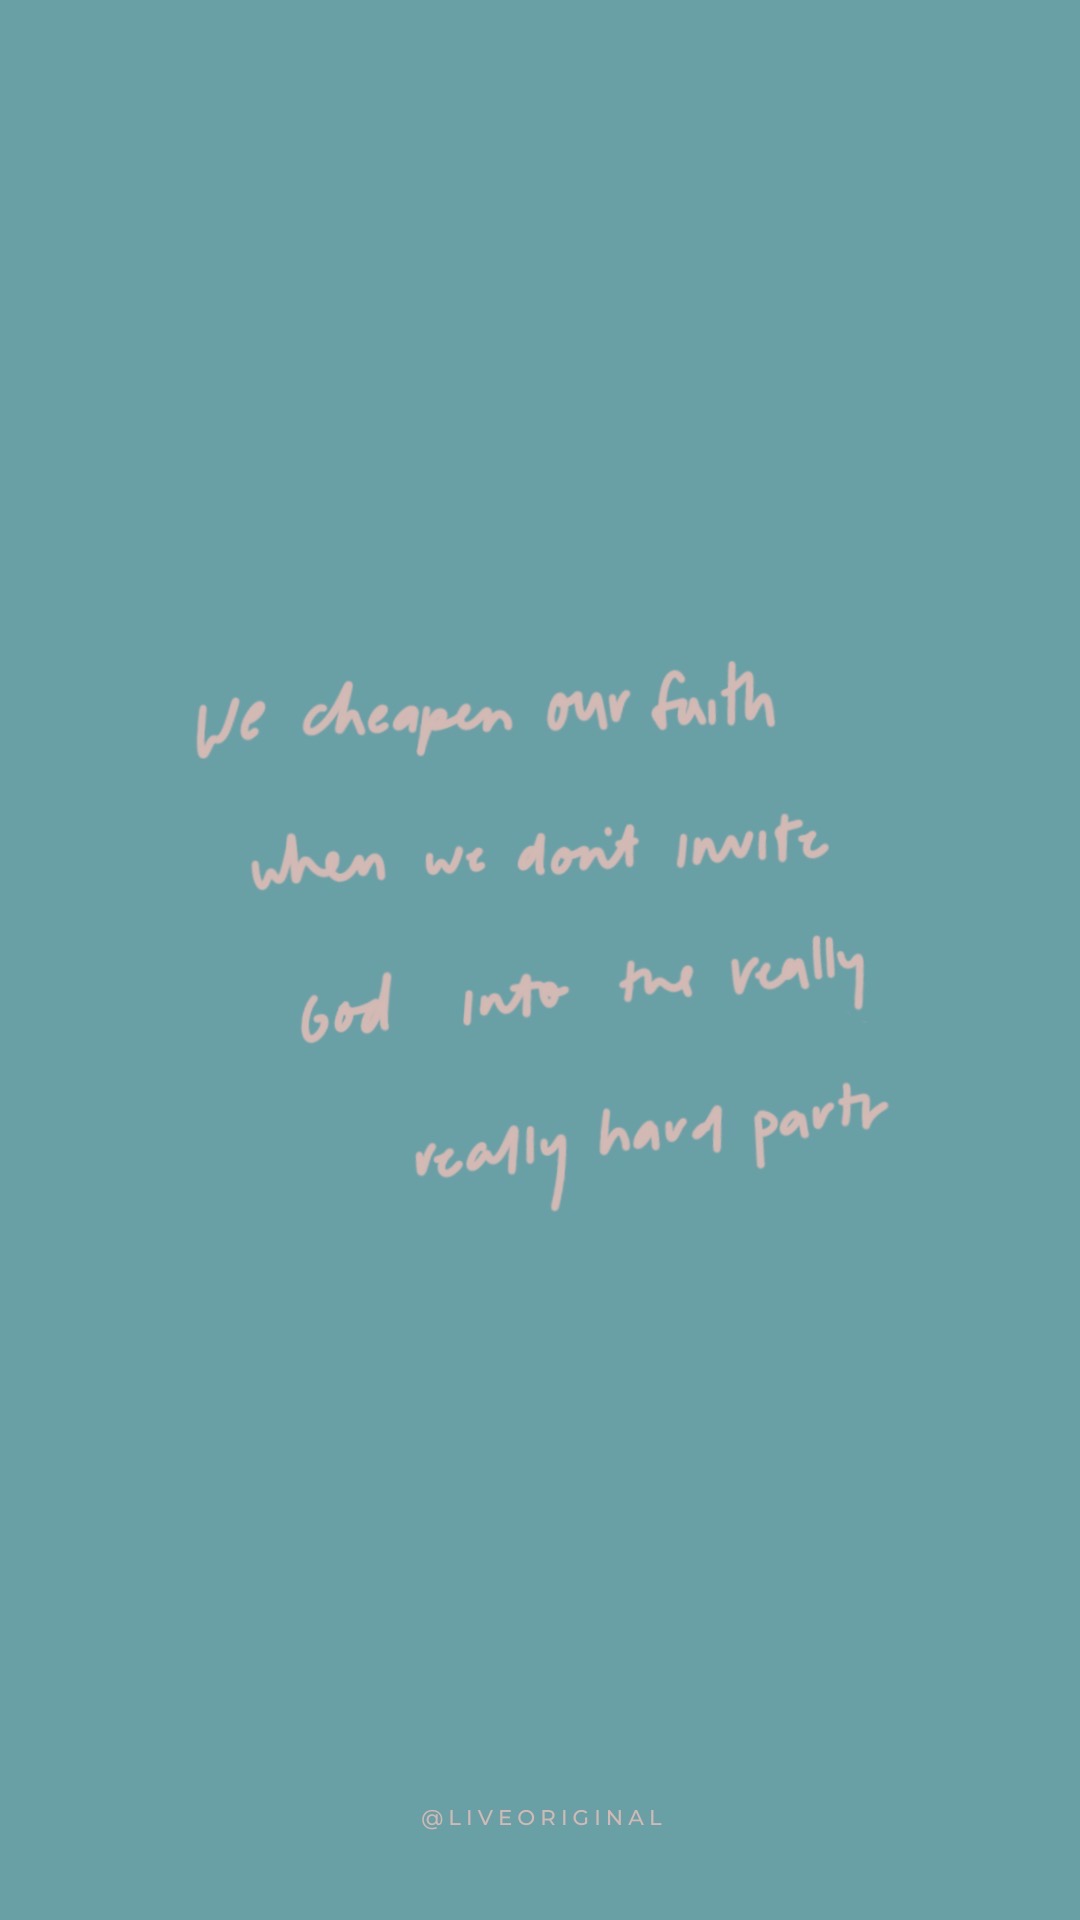 We cheapen our faith
when we don't invite
God into the really
really hard parts
@LIVEORIGINAL